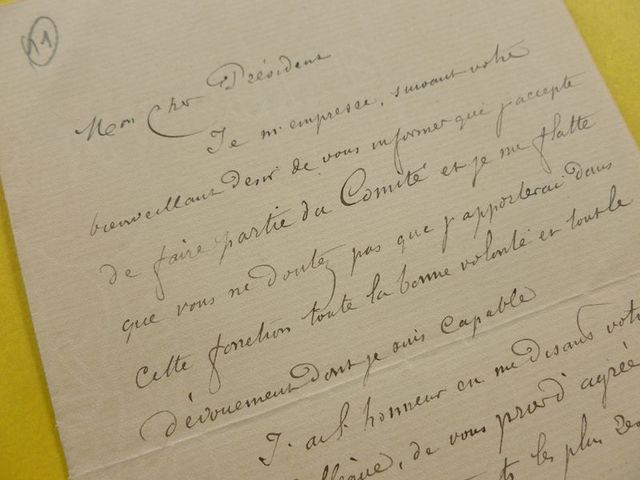 41
Mon Cher Président
Je m'empresse, suivant votre
bienveillant desir de vous informer que j'accepte
de faire partie du Comité et je me flatte
que vous ne doutez pas que j'apporterai dans
cette fonction toute la bonne volonté et tout le
dévouement dont je suis capable
J'ai l'honneur en me disant votre
de vous prier d'agréer
les plus